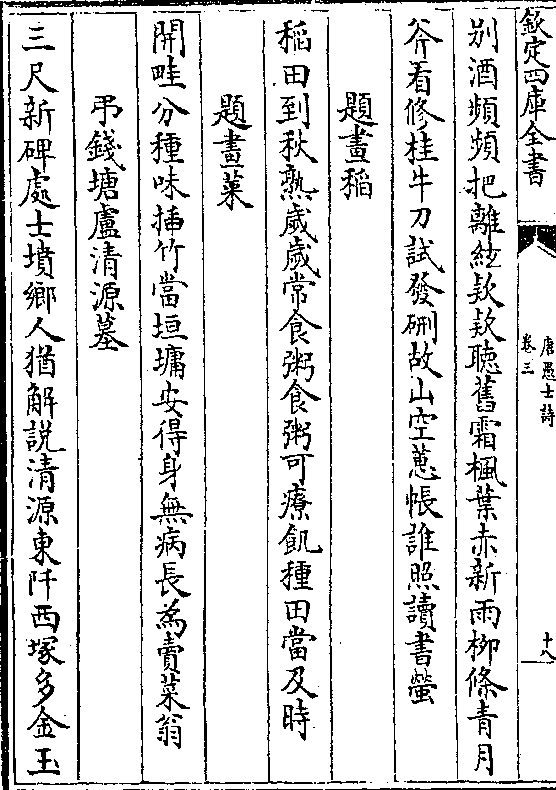 欽定四庫全書
唐愚士詩
卷三
十八
別酒頻頻把離絃欵欵聴舊霜楓葉赤新雨栁條青月
斧看修桂牛刀試發硎故山空蕙帳誰照讀書螢
題畫稻
稻田到秋熟歲歲常食粥食粥可療飢種田當及時
題畫菜
開畦分種味揷竹當垣墉安得身無病長為賣菜翁
弔錢塘盧清源墓
三尺新碑處士墳鄉人猶解說清源東阡西塚多金玉